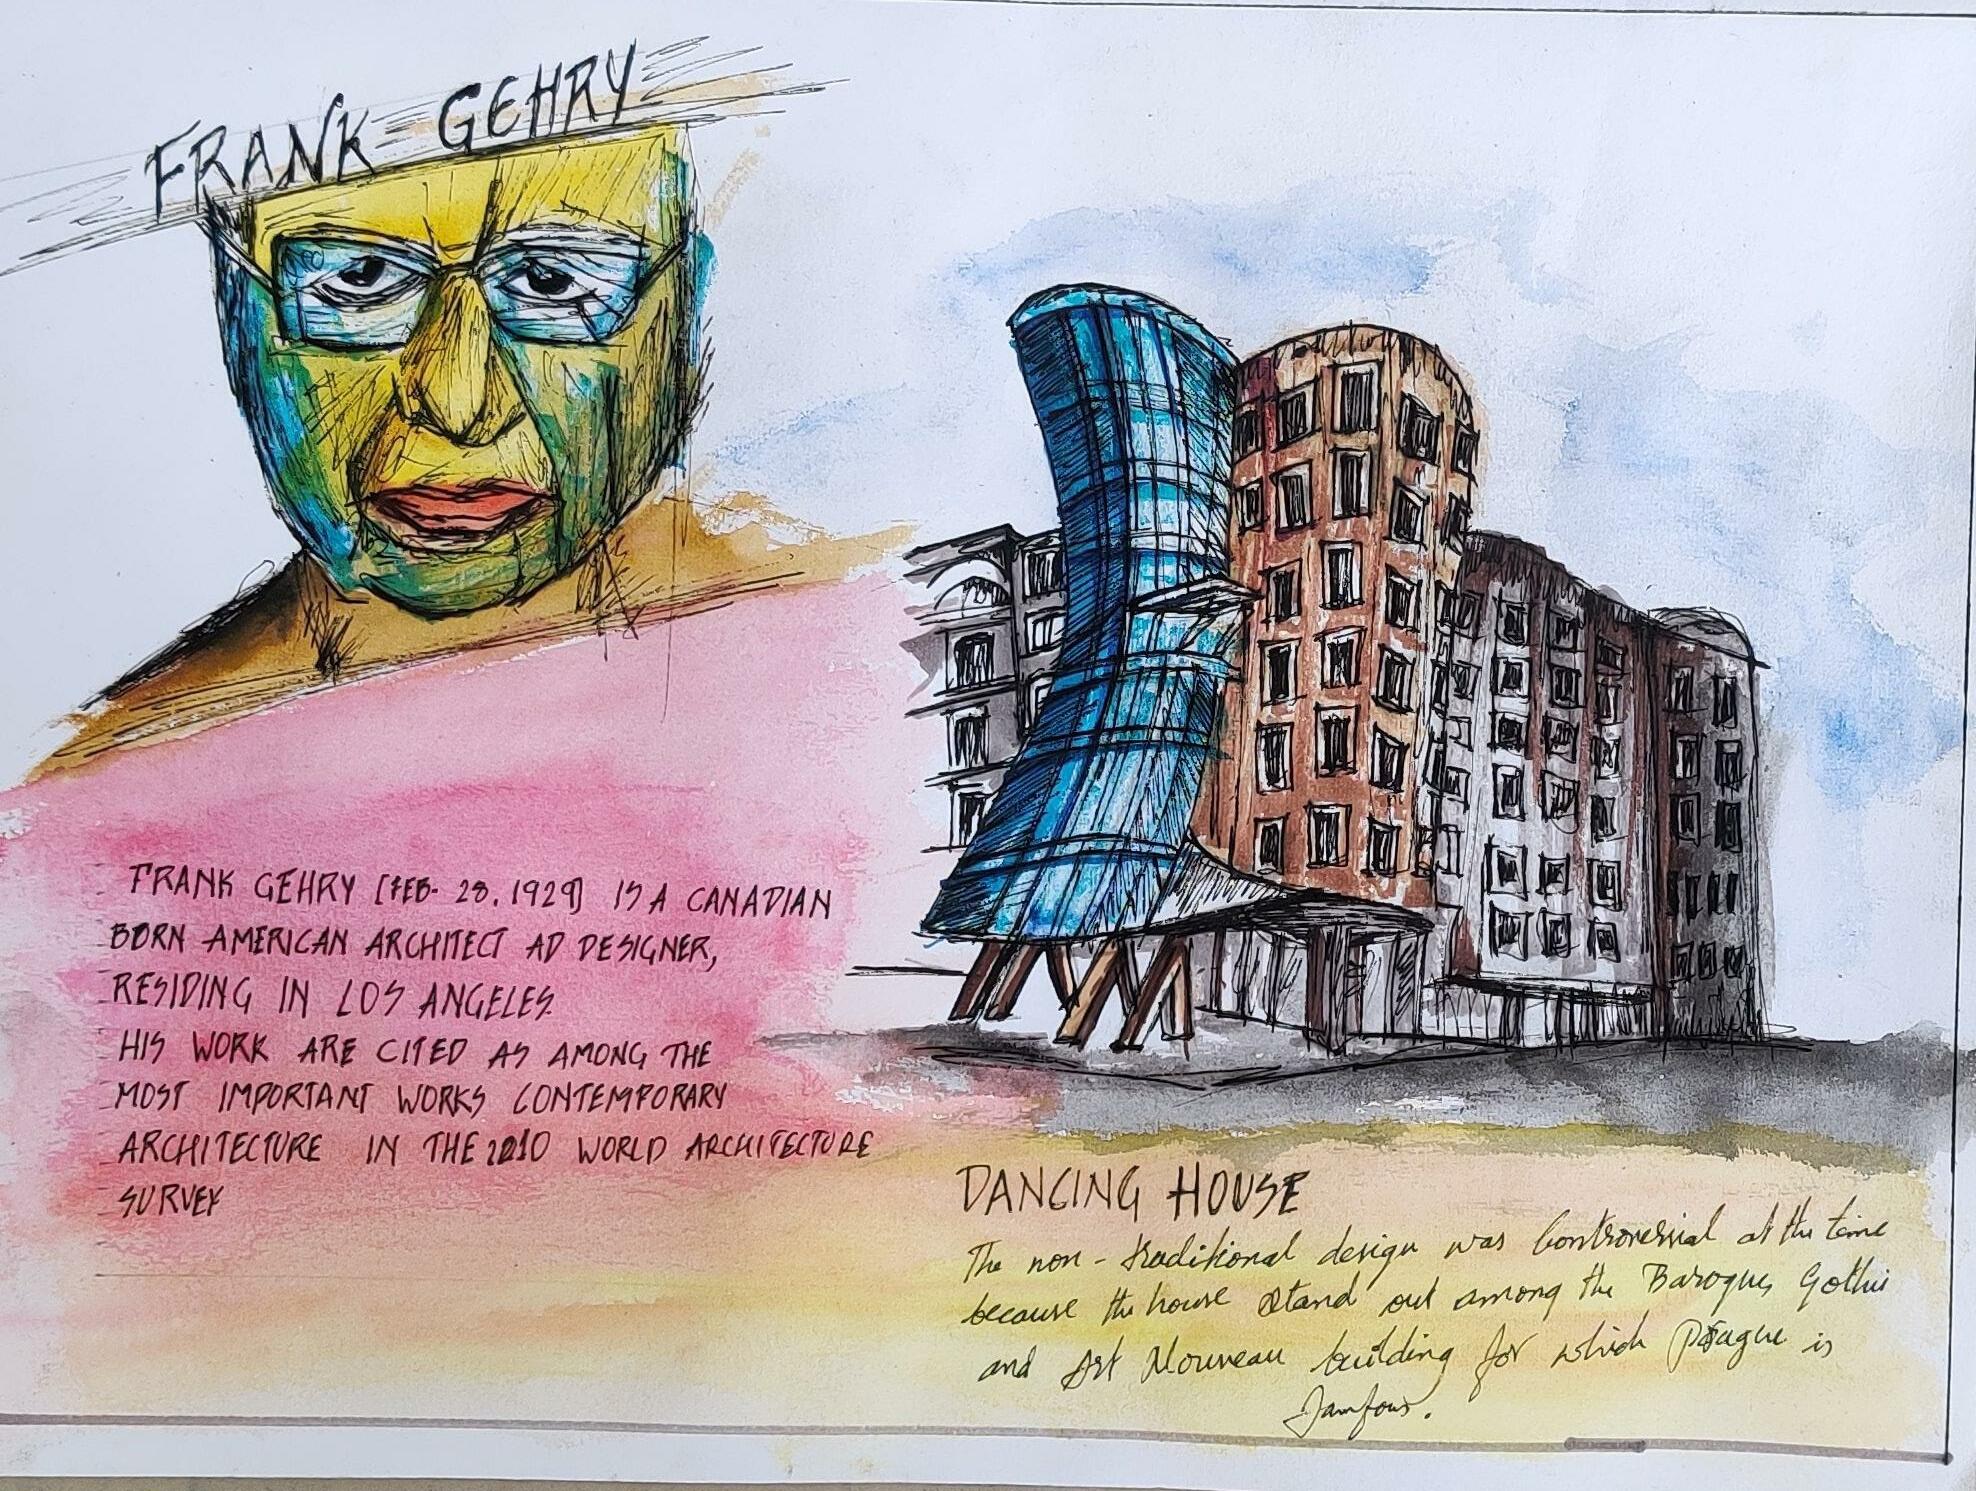 FRANK GEHRY
FRANK GEHRY [FEB. 28, 1929] IS A CANADIAN
BORN AMERICAN ARCHITECT AD DESIGNER,
RESIDING IN LOS ANGELES.
HIS WORK ARE CITED AS AMONG THE
MOST IMPORTANT WORKS CONTEMPORARY
ARCHITECTURE IN THE 2010 WORLD ARCHITECTURE
SURVEY
DANCING HOUSE
The non-traditional design was Controversial at the time
because the house stand out among the Baroque, Gothic
and Art Nouveau building for which Prague is
famous.